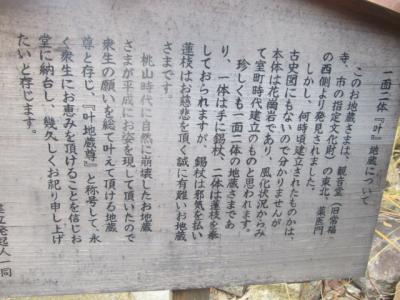 一面二体『叶』地蔵について
このお地蔵さまは、観音堂(旧常福
寺、市の指定文化財)の東北、薬医門
の西側より発見されました。
しかし、何時頃建立されたものかは、
古史図にもないので分かりませんが
本体は花崗岩であり、風化状況からみ
て室町時代建立のものと思われます。
珍しくも一面二体の地蔵さまであ
り、一体は手に錫杖、二体は蓮枝を奉
しておられますが、錫杖は邪気を払い
蓮枝はお慈悲を頂く誠に有難いお地蔵
さまです。
桃山時代に自然に崩壊したお地蔵
さまが平成にお姿を現して頂いたので
衆生の願いを総て叶えて頂ける地蔵
尊と存じ、『叶地蔵尊』と称号して、永
く衆生にお恵みを頂けることを信じお
堂に納台し、幾久しくお祀り申し上げ
たいと存じます。
建立発起人一同